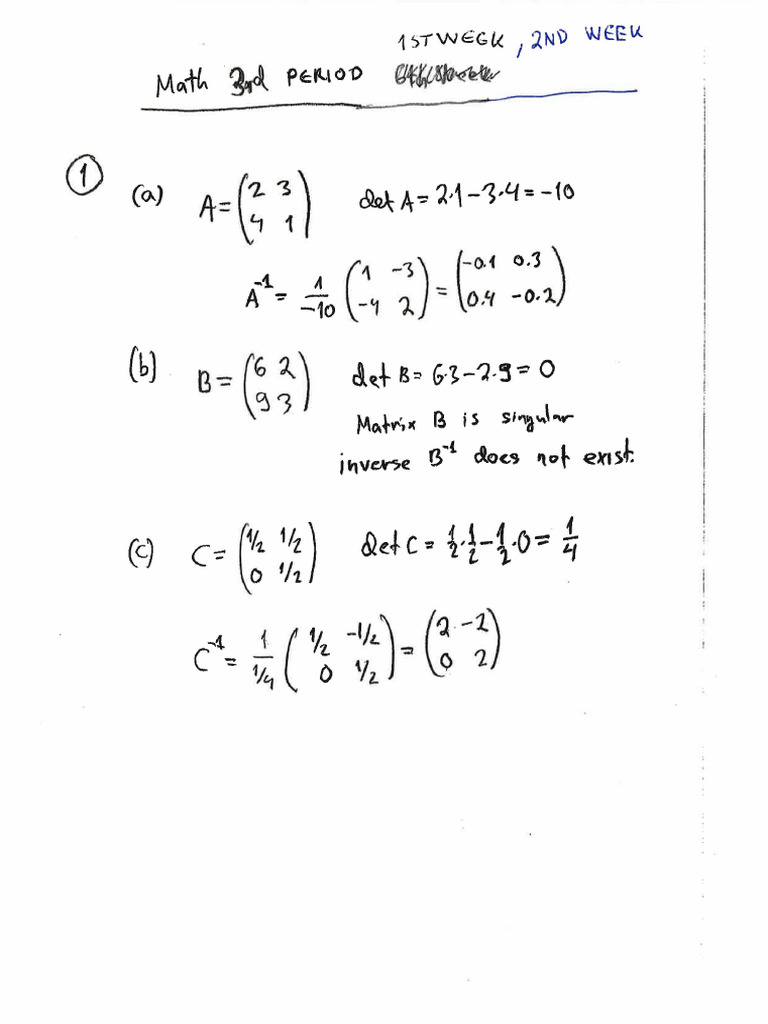 1STWEEK, 2ND WEEK
Math 3rd PERIOD
① (a) A = (2 3; 4 1) det A = 2·1-3·4 = -10
A⁻¹ = 1/-10 (1 -3; -4 2) = (-0.1 0.3; 0.4 -0.2)
(b) B = (6 2; 9 3) det B = 6·3-2·9 = 0
Matrix B is singular
inverse B⁻¹ does not exist.
(c) C = (1/2 1/2; 0 1/2) det C = 1/2·1/2-1/2·0 = 1/4
C⁻¹ = 1/1/4 (1/2 -1/2; 0 1/2) = (2 -2; 0 2)